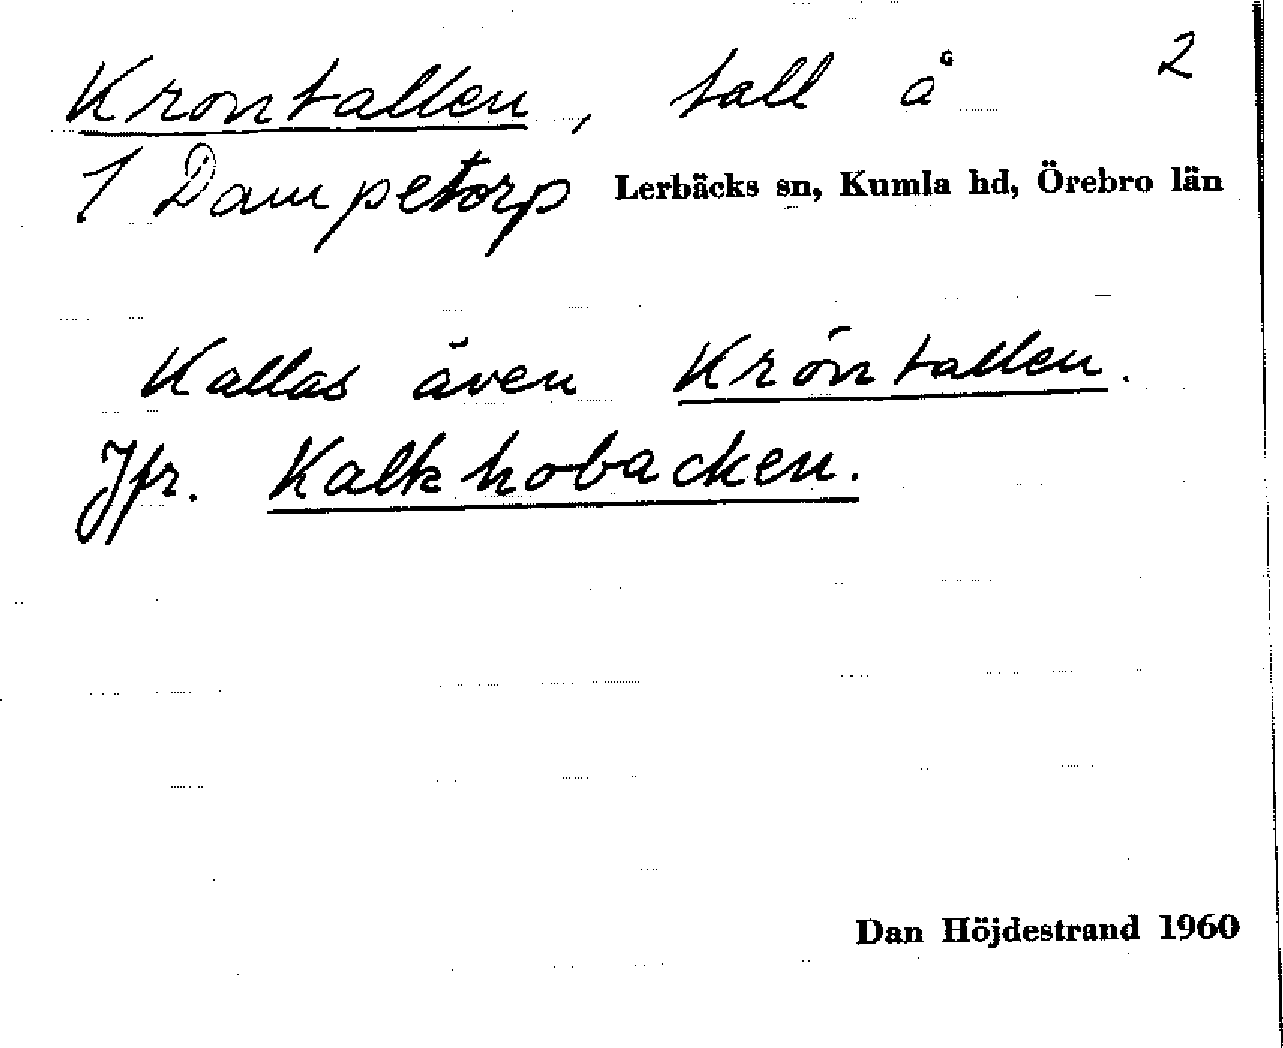 Krontallen, tall å 2
1 Dampetorp Lerbäcks sn, Kumla hd, Örebro län
Kallas även Króntallen.
Jfr. Kalkhobacken.
Dan Höjdestrand 1960